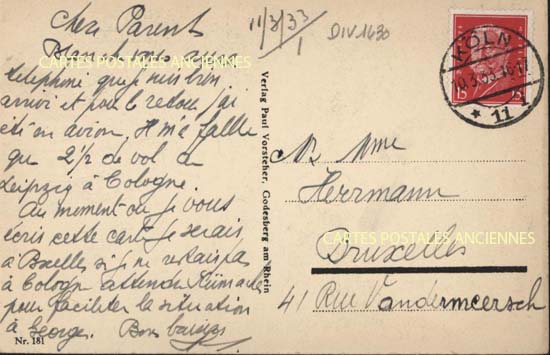 Chers Parents
11/3/33
1
DIV1630
téléphone que je suis bien
arrivé et pour le retour j'ai
été en avion. Il m'a fallu
que 2 1/2 de vol de
Leipzig à Cologne.
Au moment où je vous
écris cette carte je serais
à Bxelles si je ne restais pas
à Cologne attendre
pour faciliter la situation
à Georges. Bons baisers
Nr. 181
Verlag Paul Vorsteher, Godesberg am Rhein
KÖLN
* 11
15
CARTES POSTALES ANCIENNES
Mr Mme
Herrmann
CARTES POSTALES ANCIENNES
Bruxelles
41 Rue Vandermeersch